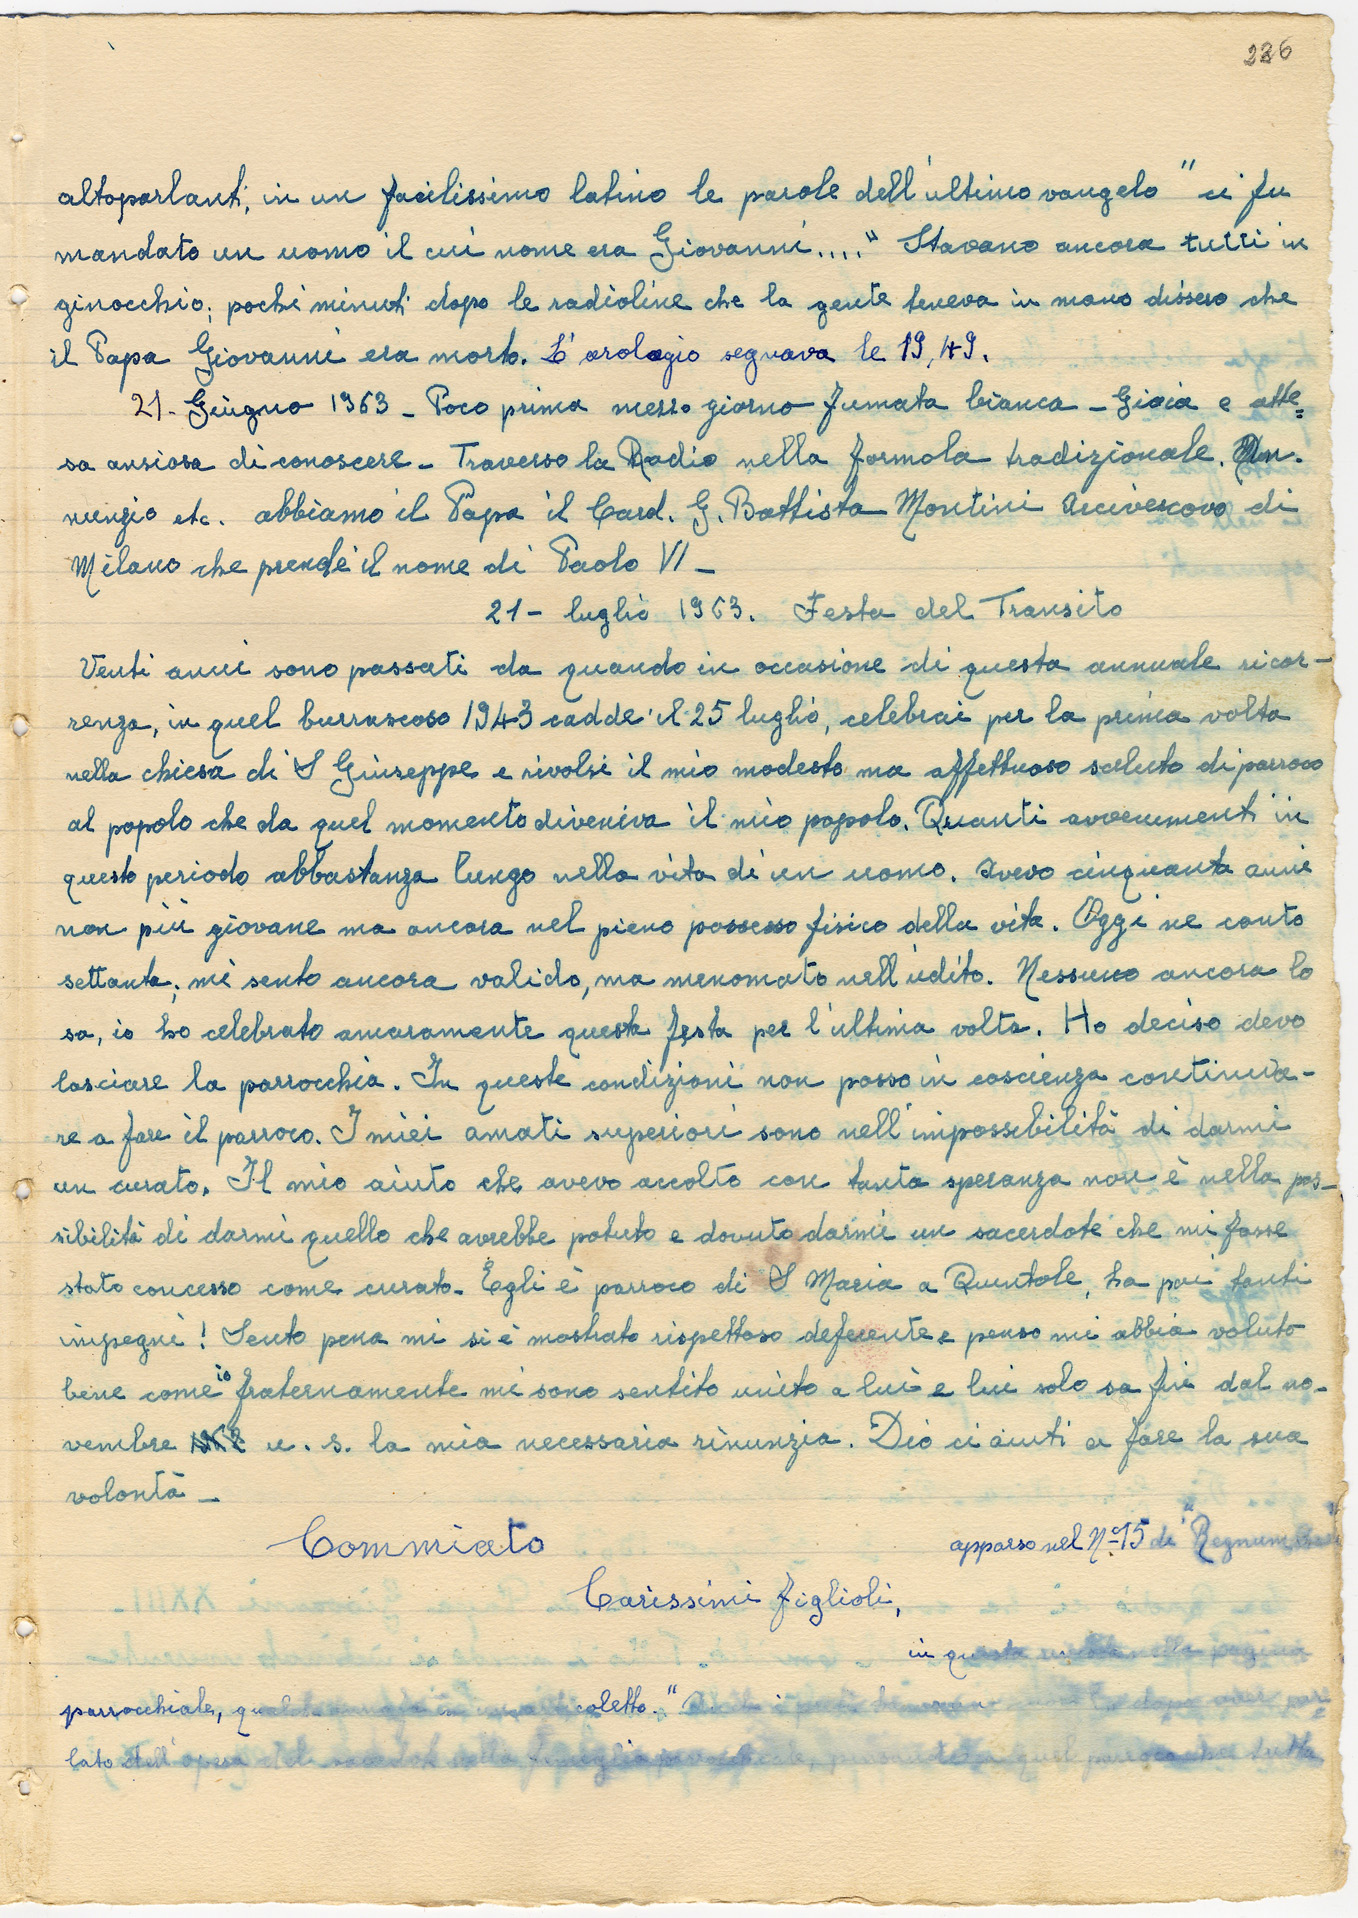 226
altoparlanti, in un facilissimo latino le parole dell'ultimo vangelo " ci fu
mandato un uomo il cui nome era Giovanni...." Stavano ancora tutti in
ginocchio; pochi minuti dopo le radioline che la gente teneva in mano dissero che
il Papa Giovanni era morto. L'orologio segnava le 19,49.
21- Giugno 1963 - Poco prima mezzo giorno fumata bianca - Gioia e atte=
sa ansiosa di conoscere - Traverso la Radio nella formola tradizionale. An.
nunzio etc. abbiamo il Papa il Card. G. Battista Montini Arcivescovo di
Milano che prende il nome di Paolo VI -
21- luglio 1963. Festa del Transito
Venti anni sono passati da quando in occasione di questa annuale ricor-
renza, in quel burrascoso 1943 cadde il 25 luglio, celebrai per la prima volta
nella chiesa di S Giuseppe e rivolsi il mio modesto ma affettuoso saluto di parroco
al popolo che da quel momento diveniva il mio popolo. Quanti avvenimenti in
questo periodo abbastanza lungo nella vita di un uomo. Avevo cinquanta anni
non più giovane ma ancora nel pieno possesso fisico della vita. Oggi ne conto
settanta; mi sento ancora valido, ma menomato nell'udito. Nessuno ancora lo
sa, io ho celebrato amaramente questa festa per l'ultima volta. Ho deciso devo
lasciare la parrocchia. In queste condizioni non posso in coscienza continua-
re a fare il parroco. I miei amati superiori sono nell'impossibilità di darmi
un curato. Il mio aiuto che avevo accolto con tanta speranza non è nella pos-
sibilità di darmi quello che avrebbe potuto e dovuto darmi un sacerdote che mi fosse
stato concesso come curato. Egli è parroco di S Maria a Quintole, ha poi tanti
impegni! Sento pena mi si è mostrato rispettoso deferente e penso mi abbia voluto
bene come io fraternamente mi sono sentito unito a lui e lui solo sa fin dal no-
vembre u. s. la mia necessaria rinunzia. Dio ci aiuti a fare la sua
volontà -
Commiato apparso nel Nº 15 di "Regnum
Carissimi figlioli,
in questa nella pagina
parrocchiale,
lato dell'opera del sacerdote nella famiglia parrocchiale, quel parroco che tutta